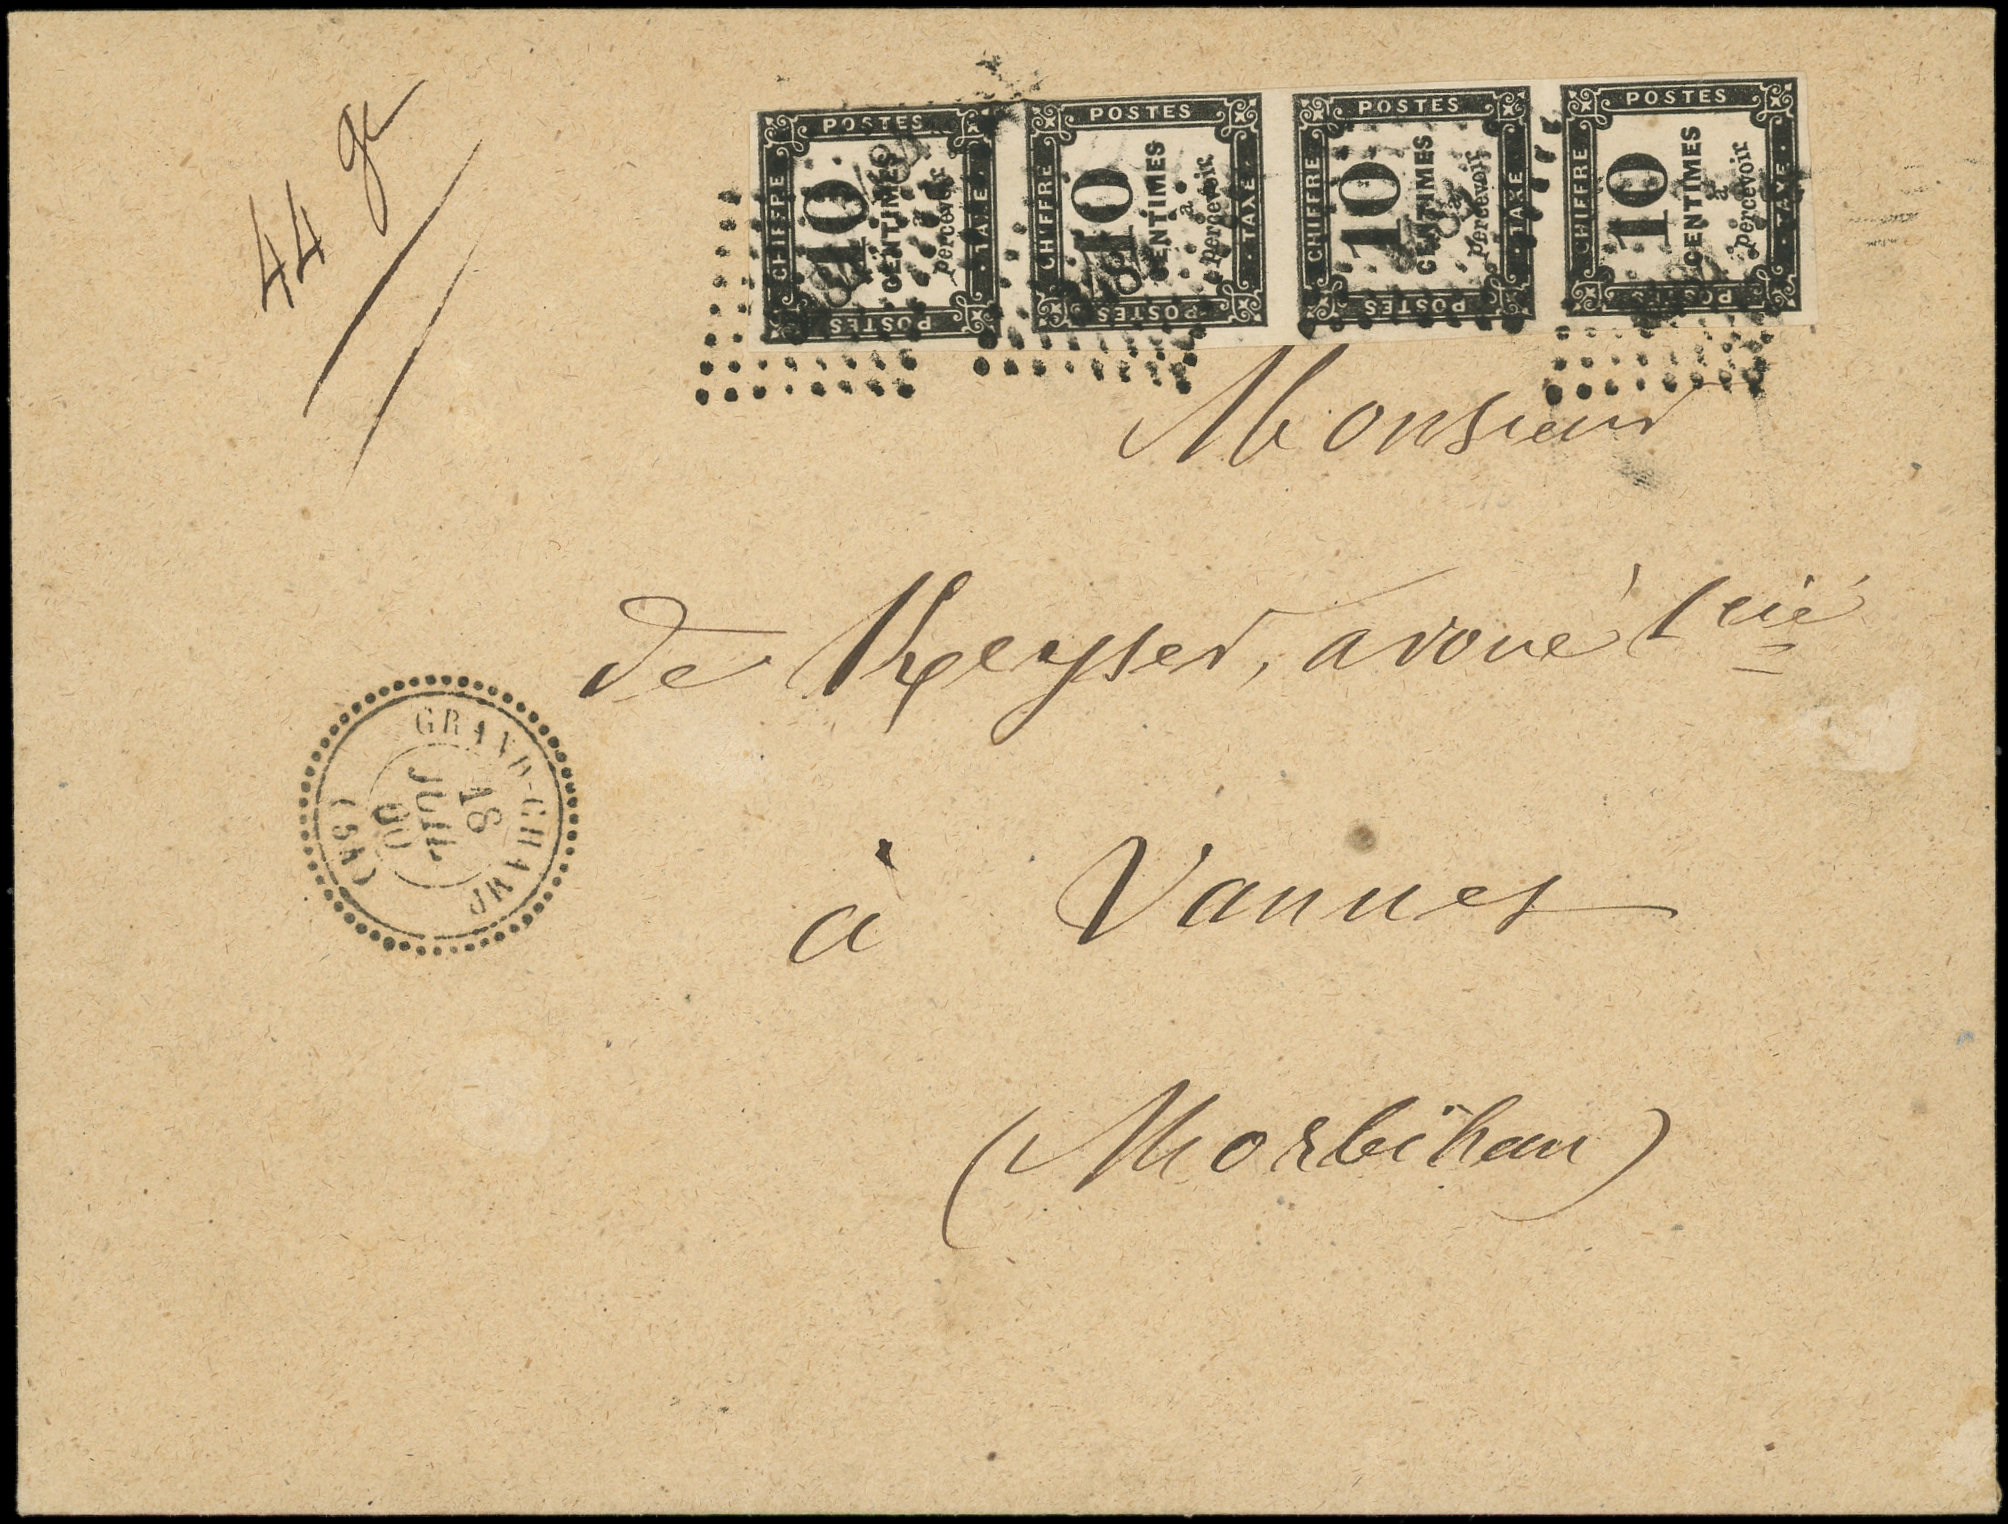 44 gr
POSTES CHIFFRE TAXE POSTES 10 CENTIMES à percevoir
POSTES CHIFFRE TAXE POSTES 10 CENTIMES à percevoir
POSTES CHIFFRE TAXE POSTES 10 CENTIMES à percevoir
POSTES CHIFFRE TAXE POSTES 10 CENTIMES à percevoir
Monsieur
de Keyser, avoué
à Vannes
(Morbihan)
GRAND-CHAMP
18
JUIL
(54)